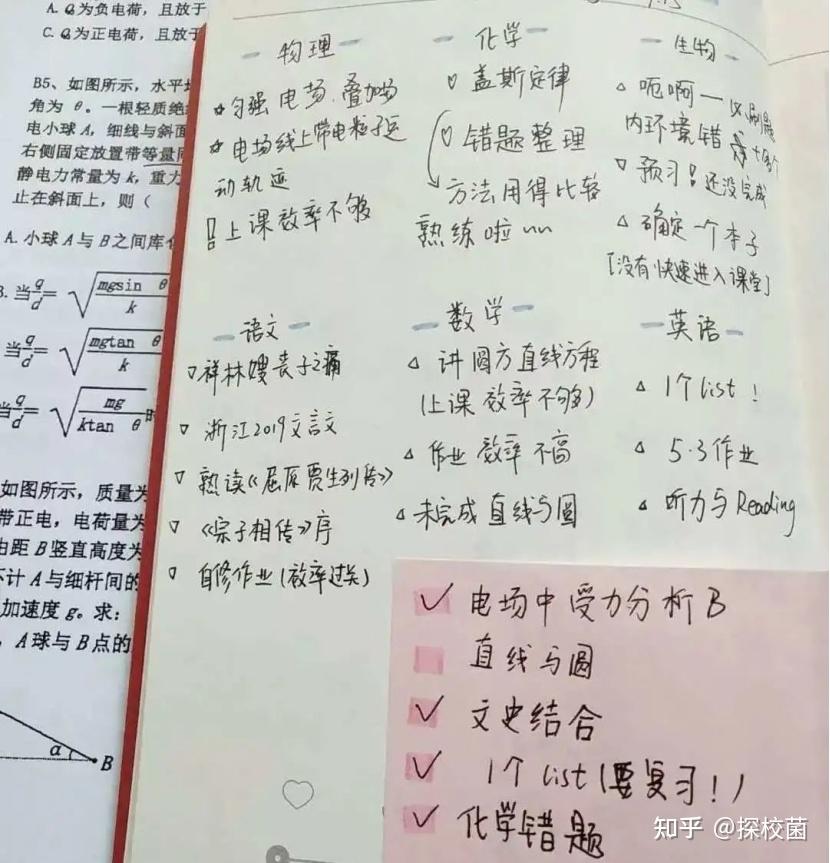 A. Q为负电荷，且放于
C. Q为正电荷，且放于
B5、如图所示，水平
角为 θ。一根轻质绝
电小球 A，细线与斜面
右侧固定放置带等量
静电力常量为 k，重力
止在斜面上，则（
A. 小球 A 与 B 之间库仑
B. 当 q/d = √(mgsin θ/k)
当 q/d = √(mgtan θ/k)
当 q/d = √(mg/ktan θ) 时
如图所示，质量为
带正电，电荷量为
由距 B 竖直高度为
不计 A 与细杆间的
加速度 g。求：
，A 球与 B 点的
α
B
物理
☆匀强电场、叠加场
☆电场线上带电粒子运
动轨迹
!上课效率不够
化学
♡盖斯定律
♡错题整理
方法用得比较
熟练啦~~
生物
△呃啊一
内环境错
▽预习!还没完成
△确定一个本子
[没有快速进入课堂]
语文
▽祥林嫂丧子之痛
▽浙江2019文言文
▽熟读《屈原贾生列传》
▽《宗子相传》序
▽自修作业(效率过关)
数学
△讲圆方直线方程
(上课效率不够)
△作业效率不高
△未完成直线与圆
英语
△1个list!
△5·3作业
△听力与Reading
✓电场中受力分析B
直线与圆
✓文史结合
✓1个list(要复习!)
✓化学错题
知乎 @探校菌